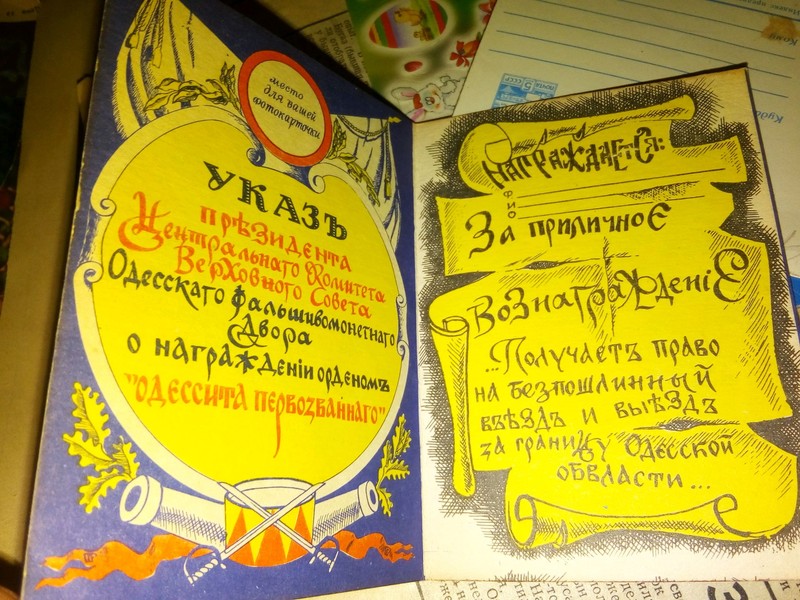 место
для вашей
фотокарточки
УКАЗЪ
прѢзидента
Центральнаго Комитета
Верховного Совета
Одесскаго фальшивомонетнаго
Двора
о награждѢнiи орденомъ
"Одессита Первозваннаго"
НАГРАЖДАЕТСЯ:
ФИО
За приличноЕ
вознаграждЕнiЕ
...Получаетъ право
на безпошлинный
въѢздъ и выѢздъ
за границу Одесской
обвласти...
почта
5
СССР
Куда